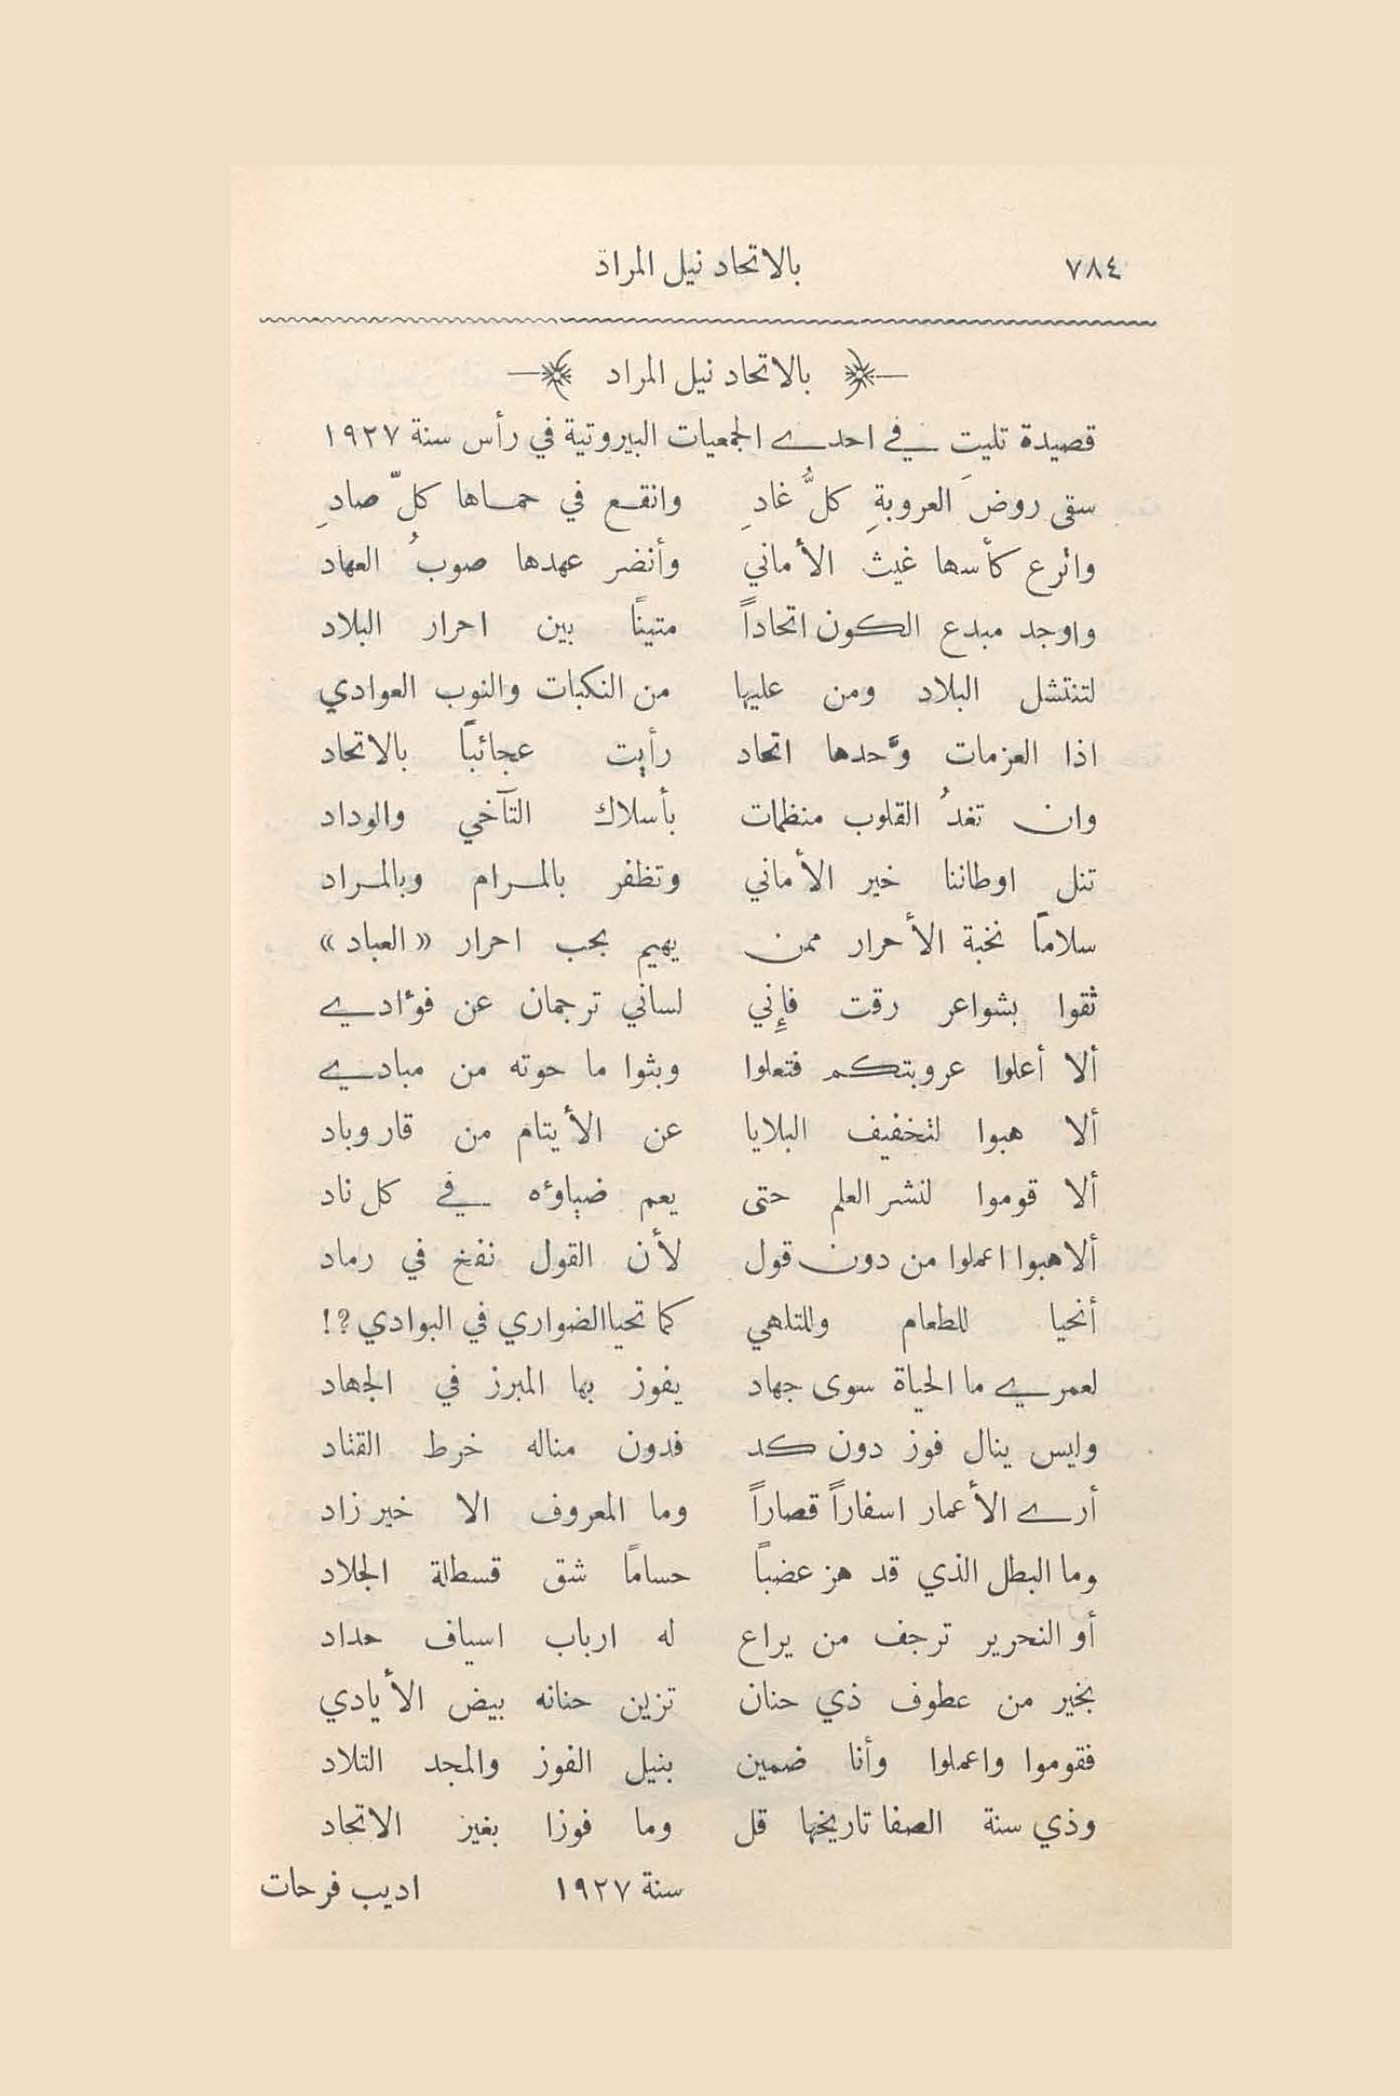 ٧٨٤ بالاتحاد نيل المراد
بالاتحاد نيل المراد
قصيدة تليت في احدى الجمعيات البيروتية في رأس سنة ١٩٢٧
سقى روضَ العروبةِ كلُّ غادِ وانقع في حماها كلّ صادِ
واترع كأسها غيث الأماني وأنضر عهدها صوبُ العهاد
واوجد مبدع الكون اتحاداً متينًا بين احرار البلاد
لتنتشل البلاد ومن عليها من النكبات والنوب العوادي
اذا العزمات وَّحدها اتحاد رأيت عجائبًا بالاتحاد
وان تغدُ القلوب منظمات بأسلاك التآخي والوداد
تنل اوطاننا خير الأماني وتظفر بالمرام وبالمراد
سلامًا نخبة الأحرار ممن يهيم بحب احرار «العباد»
ثقوا بشواعر رقت فإني لساني ترجمان عن فؤادي
ألا أعلوا عروبتكم فتعلوا وبثوا ما حوته من مبادي
ألا هبوا لتخفيف البلايا عن الأيتام من قار وباد
ألا قوموا لنشر العلم حتى يعم ضياؤه في كل ناد
ألا هبوا اعملوا من دون قول لأن القول نفخ في رماد
أنحيا للطعام وللتلهي كما تحيا الضواري في البوادي؟!
لعمري ما الحياة سوى جهاد يفوز بها المبرز في الجهاد
وليس ينال فوز دون كد فدون مناله خرط القتاد
أرى الأعمار اسفاراً قصاراً وما المعروف الا خير زاد
وما البطل الذي قد هز عضباً حسامًا شق قسطلة الجلاد
أو النحرير ترجف من يراع له ارباب اسياف حداد
بخير من عطوف ذي حنان تزين حنانه بيض الأيادي
فقوموا واعملوا وأنا ضمين بنيل الفوز والمجد التلاد
وذي سنة الصفا تاريخها قل وما فوزا بغير الاتحاد
سنة ١٩٢٧ اديب فرحات